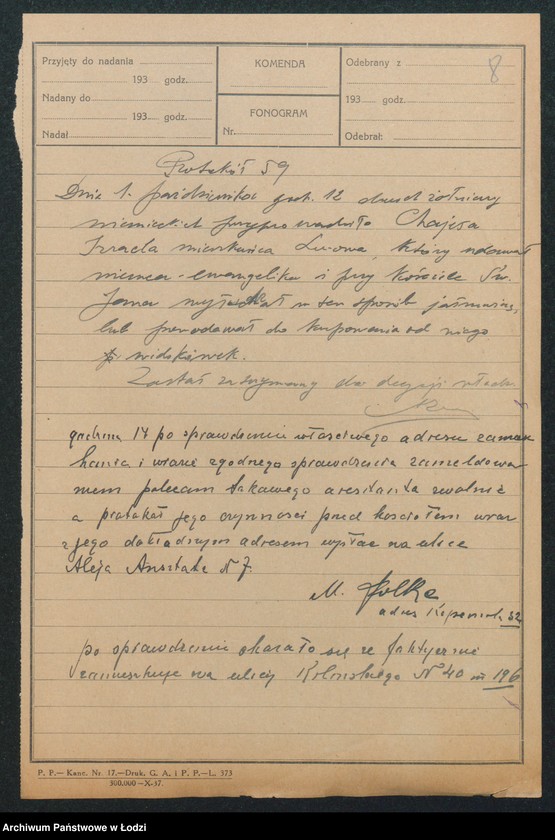 Przyjęty do nadania
193 godz.
Nadany do
193 godz.
Nadał
KOMENDA
FONOGRAM
Nr.
Odebrany z
193 godz.
Odebrał:
8
Protokół 59
Dnia 1. października godz. 12 dwuch żołnierzy
niemieckich przyprowadziło Chajesa
Izraela mieszkańca Lwowa, który udawał
niemca-ewangelika i przy Kościele Św.
Jana w ten sposób jałmużnę,
lub do kupowania od niego
widokówek.
Został zatrzymany do decyzji władz
godzina 17 po sprawdzeniu właściwego adresu zamiesz
kania i wraz zgodnego sprawdzenia zameldowa
niem polecam takowego aresztanta zwolnić
a protokół jego czynności przed kościołem wraz
z jego dokładnym adresem wysłać na ulice
Aleja Ansztata N 7.
M. Folke
adres Kopernika 32
po sprawdzeniu okazało się że faktycznie
zamieszkuje na ulicy Kilińskiego N 40 m 196
P. P.— Kanc. Nr. 17.—Druk. G. A. i P. P.—L. 573
300.000—X-37.
Archiwum Państwowe w Łodzi